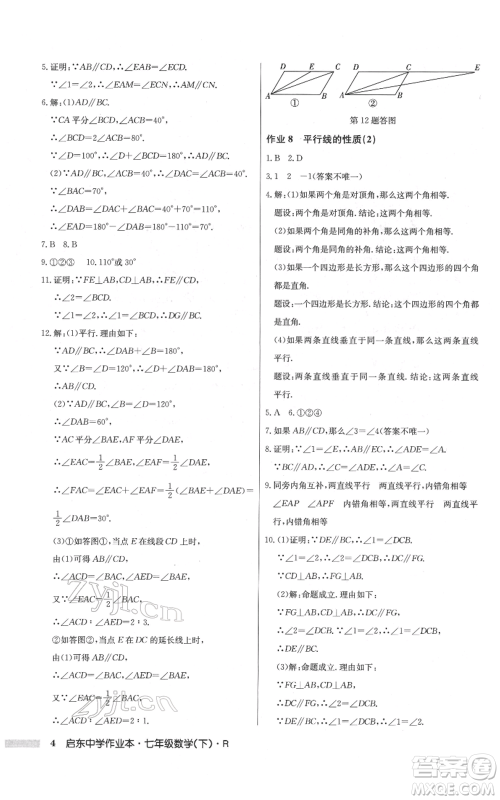 5.证明:∵AB∥CD,∴∠4=∠EAB.
∵∠1=∠2,∴∠EAM=∠EAN.
6.解:(1)∵AD∥BC,
∵CA平分∠BCD,∠ACB=40°,
∴∠BCD=80°,
∴∠D=100°.
(2)∵AD∥BC,∠BAC=70°,
∴∠DAE=∠B=70°,
∴∠EAD=180°-∠DAB=70°.
7.B 8.B
9.①②③ 10.110°或30°
11.证明:∵FE⊥AB,CD⊥AB,
∴∠2=∠BCD.
∵∠1=∠2,
∴∠1=∠BCD,
∴∠3=∠ACB.
12.解:(1)平行.理由如下:
∵AD∥BC,∴∠DAB+∠B=180°,
又∵∠B=∠D=120°,
∴∠DAB+∠D=180°,
∴AB∥CD.
(2)∵AD∥BC,∠B=∠D=120°,
∴∠DAB=60°.
∵AC平分∠BAE,AF平分∠DAE,
∴∠EAC=1/2∠BAE,∠EAF=1/2∠DAE,
∴∠FAC=∠EAC+∠EAF=1/2(∠BAE+∠DAE)=
1/2∠DAB=30°.
(3)①如答图①,当点E在线段CD上时,
由(1)可得AB∥CD,
∴∠ACD=∠BAC,∠AED=∠BAE,
又∵∠EAC=1/2∠BAE,
∴∠ACD:∠AED=1:2.
②如答图②,当点E在DC的延长线上时,
由(1)可得AB∥CD,
∴∠ACD=∠BAC,∠AED=∠BAE,
又∵∠EAC=1/2∠BAC,
∴∠ACD:∠AED=2:1.
D E C D C E
A B A B
① ②
第12题答图
作业8 平行线的性质(2)
1.B 2.D
3.1 2 -1(答案不唯一)
4.解:(1)如果两个角是对顶角,那么这两个角相等.
题设:两个角是对顶角.结论:这两个角相等.
(2)如果两个角是同角的补角,那么这两个角相等.
题设:两个角是同角的补角.结论:这两个角相等.
(3)如果一个四边形是长方形,那么这个四边形的四个角都是直角.
题设:一个四边形是长方形.结论:这个四边形的四个角都是直角.
(4)如果两条直线垂直于同一条直线,那么这两条直线平行.
题设:两条直线垂直于同一条直线.结论:这两条直线平行.
5.A 6.①②④
7.如果∠1=∠2,那么∠3=∠4(答案不唯一)
8.证明:∵∠1=∠C,∠1=∠ADE,∴∠C=∠ADE.
∵DE∥BC,∴∠B=∠ADE,∴∠B=∠C.
9.同旁内角互补,两直线平行 两直线平行,内错角相等
∠EAP ∠APF 内错角相等,两直线平行 两直线平行,内错角相等
10.(1)证明:∵DE∥BC,∴∠1=∠DCB.
∵∠1=∠2,∴∠2=∠DCB,∴DC∥FG.
(2)解:命题成立.理由如下:
∵DC∥FG,∴∠2=∠DCB.
∵∠1=∠2,∴∠1=∠DCB,
∴DE∥BC.
(3)解:命题成立.理由如下:
∵DE∥BC,∴∠1=∠DCB.
∵DC∥FG,∴∠2=∠DCB,∴∠1=∠2.
4 启东中学作业本·七年级数学(下)·R